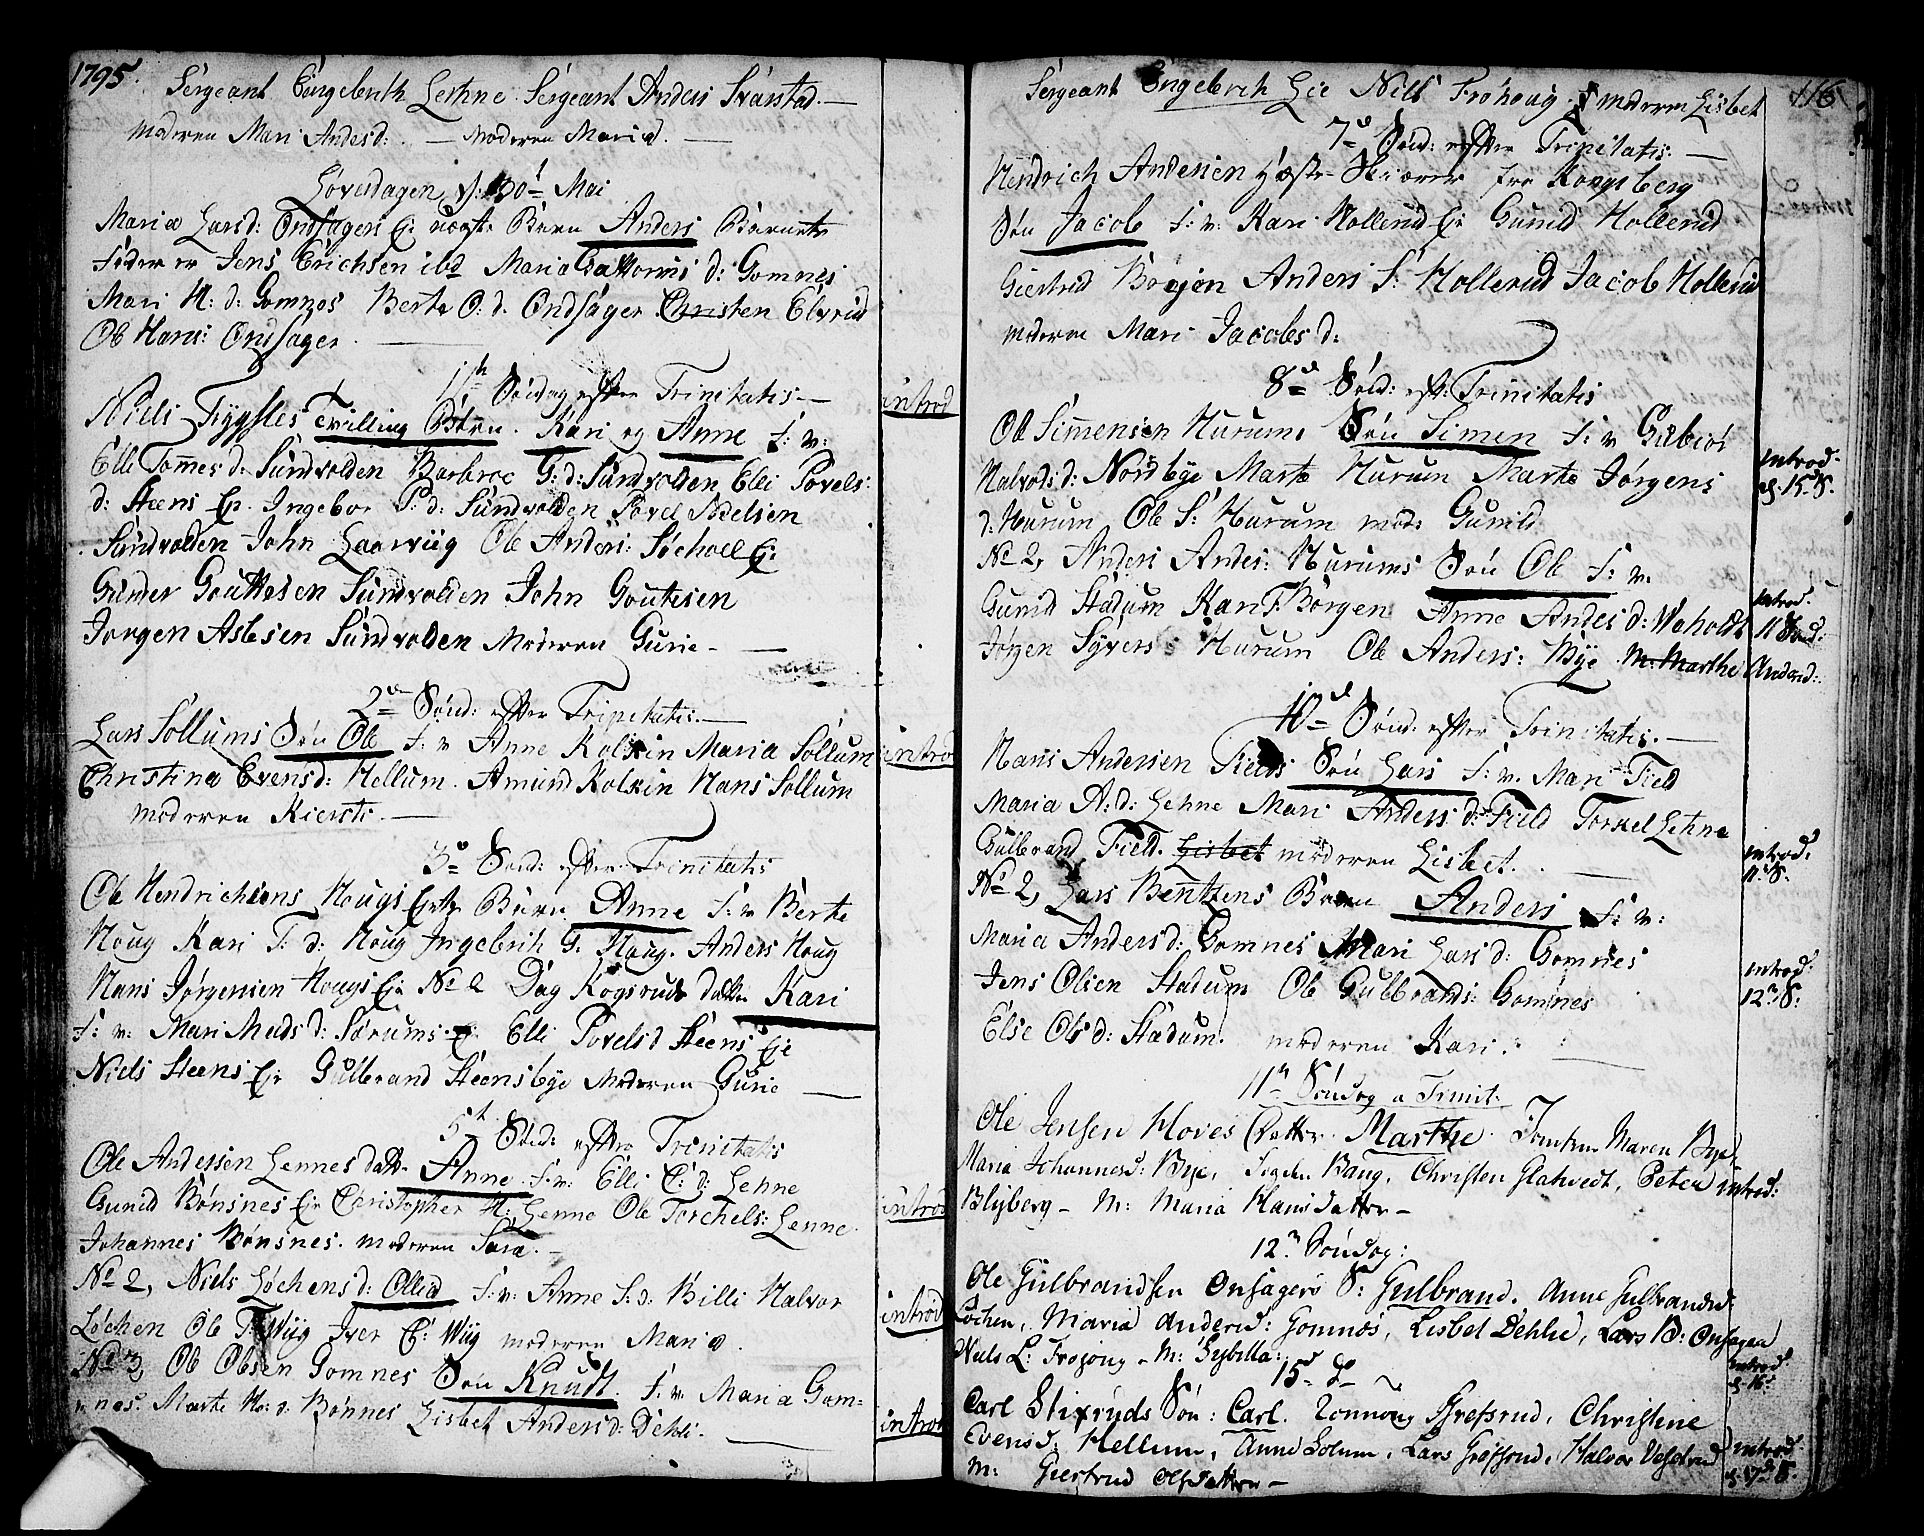 1795.
Sergeant Engebrith Lehne Sergeant Anders Svarstad.—
moderen Mari Andersd: . — Moderen Maria. —
Løverdagen d: 30t Mai
Maria Larsd: Ondsagers Eje uægte Barn Anders Barnets
Fader er Jens Erichsen ibd Maria d: Gomnes
Mari H: d: Gomnes Berte O: d. Ondsager Christen Elvrud
Ole Hans: Ondsager. —
Søndag efter Trinitatis.—
Niels Tygesles Tvilling Børn. Kari og Anne F: v:
Elli Tommes d: Sundvolden Barbroe G: d: Sundvolden Elli Povels
d: Steens Eje. Ingebor P: d: Sundvolden Povel Nielsen
Sundvolden John Laarviig Ole Anders: Søehoel Eje
Gunder Gouttesen Sundvolden John Goutesen
Jørgen Aslesen Sundvolden Moderen Gurie — —
introd
2den Sønd: efter Trinitatis.—
Lars Sollums Søn Ole F: v Anne Kolkin Maria Sollum
Christina Evensd: Hellum. Amund Kolkin Hans Sollum
moderen Kiersti. —
introd
3de Sønd: efter Trinitatis
Ole Hendrichsens Hougs Eje Barn Anne F: v Berte
Houg Kari T: d: Houg Ingebrih G: Houg. Anders Houg
Hans Jørgensen Hougs Eje No 2 Dag Kogsruds Datter Kari
F: v: Mari Mads d: Særums Eje Elli Povels d Steens Eje
Niels Steens Eje Gulbrand Steensbye Moderen Gurie —
5t Sønd: efter Trinitatis
Ole Andersen Lennes datt: Anne F: v: Elli E: d: Lehne
Gunild Bønsnes Eje Christopher H: Lenne Ole Torchels: Lenne
Johannes Bønsnes. moderen Sara. —
introd
No 2, Niels Løchens d: Ollia F: v: Anne S: d: Billi Halvor
Løchen Ole T: Wiig Iver E: Wiig moderen Maria.
introd
No 3, Ole Olsen Gomnes Søn Knudt. F: v: Maria Gom=
nes. Marte Ho: d: Bønnes Lisbet Anders d: Dehli. —
introd
116
Sergeant Engebreh Lie Nils Frøhoug. moderen Lisbet
7de Sønd: efter Trinitatis. —
Hendrich Andersen Hæste-Skiærer fra Kongsberg
Søn Jacob F: v: Kari Hollerud Eje Gunild Hollerud
Giertrud Anders S: Hollerud Jacob Hollerud
moderen Mari Jacobs d:
8de Sønd: eft: Trinitatis
Ole Simensen Hurums Søn Simen F: v Gubiør
Halvords d: Nordbye Marte Hurum Marte Jørgens
d: Hurum Ole S: Hurum mod: Gunild
introd.
d. 15. S.
No 2, Anders Anders: Hurums Søn Ole F: v.
Gunild Stadum Kari T: Børgen Anne Anders d: Weholdt
Jørgen Syvers: Hurum Ole Anders: Bye. M: Marthe Anderd:
introd.
11 Sønd:
10de Sønd: efter Trinitatis. —
Hans Andersen Fields Søn Lars F: v. Mari Field
Maria A: d: Lehne Mari Anders d: Field Torkel Lehne
Gulbrand Field. Lisbet moderen Lisbet. —
introd.
11. S.
No 2, Lars Bentzens Barn Anders F: v:
Maria Anders d: Gomnes Mari Lars d: Gomnes
Jens Olsen Stadum Ole Gulbrands: Gomnes
Else Ols d: Stadum. moderen Kari. —
introd:
12te S:
11te Søndag a Trinit:
Ole Jensen Hoves Datter. Marthe. Jomfru Maren Bye,
Maria Johannesd: Bye, Baug, Christen Glatvedt, Peter
Blyberg — M: Maria Hans datter —
introd:
12te Søndag:
Ole Gulbrandsen Onsagers S: Gulbrand. Anne Gulbrandsd:
Løchen, Maria Andersd: Gomnes, Lisbet Dehli, Lars B: Onsagen
Niels L: Frøjoug — M: Sybilla:
introd.
d. 16.
15de do ~
Carl Stixruds Søn: Carl. Ronnoug Grefsrud, Christine
Evensd: Hellum, Anne Solum, Lars Grefsrud, Halvor Veslerud
m: Giertrud Olsdatter —
introd
d. 17de S.